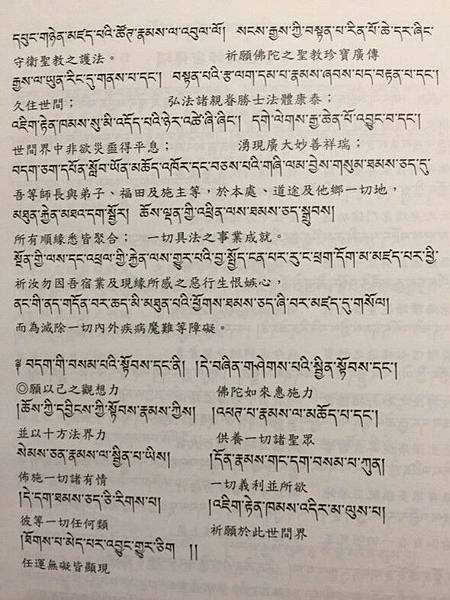 དཔུང་གཉེན་མཛད་པའི་ཚོར་རྣམས་ལ་འབུལ་ལོ། སངས་རྒྱས་ཀྱི་བསྟན་པ་རིན་པོ་ཆེ་དར་ཞིང་
守衛聖教之護法。 祈願佛陀之聖教珍寶廣傳
རྒྱས་ལ་ཡུན་རིང་དུ་གནས་པ་དང་། བསྟན་པའི་རྩ་ལག་དམ་པ་རྣམས་ཞབས་པད་བརྟན་པ་དང་།
久住世間; 弘法諸親眷勝士法體康泰;
འཇིག་རྟེན་ཁམས་སུ་མི་འདོད་པའི་ཉེར་འཚེ་ཞི་ཞིང་། དགེ་ལེགས་རྒྱ་ཆེན་པོ་འབྱུང་བ་དང་།
世間界中非欲災噩得平息; 湧現廣大妙善祥瑞;
བདག་ཅག་དཔོན་སློབ་ཡོན་མཆོད་འཁོར་དང་བཅས་པའི་གཞི་ལམ་བྱེས་གསུམ་ཐམས་ཅད་དུ་
吾等師長與弟子、福田及施主等,於本處、道途及他鄉一切地,
མཐུན་རྐྱེན་མཐའ་དག་སྦྱོར། ཆོས་ལྡན་གྱི་འཕྲིན་ལས་ཐམས་ཅད་སྒྲུབས།
所有順緣悉皆聚合; 一切具法之事業成就。
སྔོན་གྱི་ལས་དང་འཕྲལ་གྱི་རྐྱེན་ལས་གྱུར་པའི་བྱ་སྤྱོད་ངན་པར་རུ་ང་ཕྲག་དོག་མ་མཛད་པར་ཕྱི་
祈汝勿因吾宿業及現緣所感之惡行生恨嫉心,
ནང་གི་ནད་གདོན་བར་ཆད་མི་མཐུན་པའི་ཕྱོགས་ཐམས་ཅད་ཞི་བར་མཛད་དུ་གསོལ།
而為滅除一切內外疾病魔難等障礙。
༈ བདག་གི་བསམ་པའི་སྟོབས་དང་ནི། །དེ་བཞིན་གཤེགས་པའི་སྦྱིན་སྟོབས་དང་།
◎願以己之觀想力 佛陀如來惠施力
།ཆོས་ཀྱི་དབྱིངས་ཀྱི་སྟོབས་རྣམས་ཀྱིས། །འཕགས་པ་རྣམས་ལ་མཆོད་པ་དང་།
並以十方法界力 供養一切諸聖眾
སེམས་ཅན་རྣམས་ལ་སྦྱིན་པ་ཡིས། །དོན་རྣམས་གང་དག་བསམ་པ་ཀུན།
佈施一切諸有情 一切義利並所欲
།དེ་དག་ཐམས་ཅད་ཅི་རིགས་པ། །འཇིག་རྟེན་ཁམས་འདིར་མ་ལུས་པ།
彼等一切任何類 祈願於此世間界
།ཐོགས་པ་མེད་པར་འབྱུང་གྱུར་ཅིག །།
任運無礙皆顯現